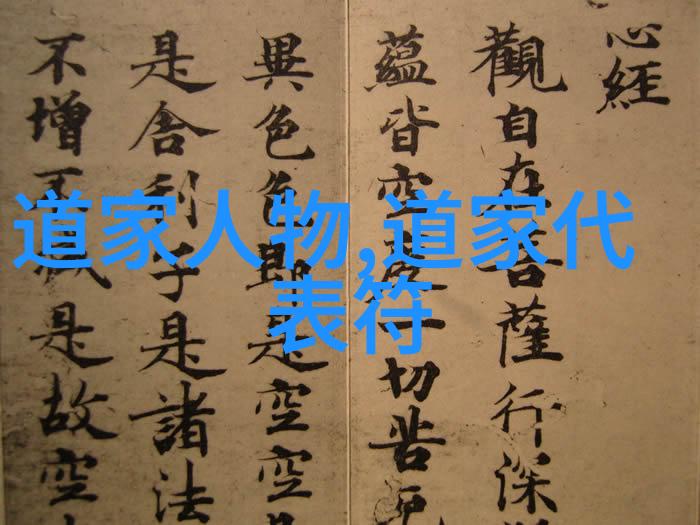 心經
觀自在菩薩行深
蘊皆空度一切苦厄
異色色即是空空是
是舍利子是諸法
不增不減是故空
道家人物,道家代
表符